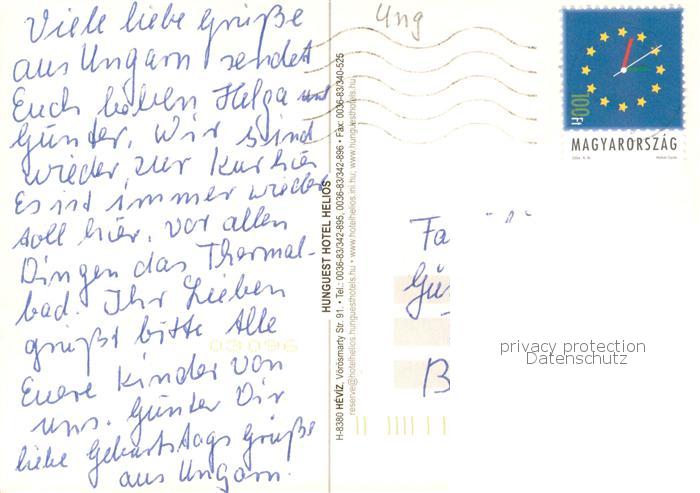 Viele liebe Grüße
aus Ungarn sendet
Euch lieben Helga und
Günter. Wir sind
wieder zur Kur hier
Es ist immer wieder
toll hier, vor allen
Dingen das Thermal-
bad. Ihr Lieben
grüßt bitte Alle
Euere Kinder von
uns. Günter Dir
liebe Geburtstags Grüße
aus Ungarn.
HUNGUEST HOTEL HELIOS
H-8380 HÉVÍZ, Vörösmarty Str. 91. • Tel.: 0036-83/342-895, 0036-83/342-896 • Fax: 0036-83/340-525
reserve@hotelhelios.hunguesthotels.hu • www.hotelhelios.ini.hu; www.hunguesthotels.hu
Ung
100Ft
MAGYARORSZÁG
Fa
Gü
B
privacy protection
Datenschutz
03096